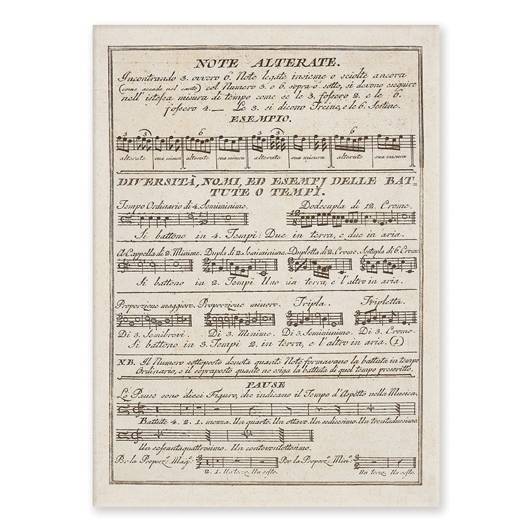 NOTE ALTERATE.
Incontrando 3. ovvero 6. Note legate insieme o sciolte ancora
(come accade nel canto) col Numero 3. o 6. sopra o sotto, si devono eseguire
nell' istessa misura di tempo come se le 3. fossero 2. e le 6.
fossero 4. — Le 3. si dicono Treine, e le 6. Sestine.
ESEMPIO.
6 3 3 6 3 3 6
alterate sua misura alterate sua misura alterate sua misura alterate sua misura
DIVERSITÀ, NOMI, ED ESEMPJ DELLE BAT-
TUTE O TEMPI.
Tempo Ordinario di 4. Semiminime. Dodecupla di 12. Crome.
Si battono in 4. Tempi: Due in terra, e due in aria.
A Cappella di 2. Minime. Dupla di 2. Semiminime. Dupletta di 2. Crome. Sestupla di 6. Crome
Si battono in 2. Tempi Uno in terra, e l'altro in aria.
Proporzione maggiore. Proporzione minore. Tripla. Tripletta.
Di 3. Semibrevi. Di 3. Minime. Di 3. Semiminime. Di 3. Crome.
Si battono in 3. Tempi 2. in terra, e l'altro in aria. (1)
NB. Il Numero sottoposto denota quante Note formavano la battuta in tempo
Ordinario, e il sovraposto quante ne esiga la battuta di quel tempo prescritto.
PAUSE
Le Pause sono dieci Figure, che indicano il Tempo d'Aspetto nella Musica.
Battute 4. 2. 1. mezza. Un quarto. Un ottavo Un sedicesimo. Un trentaduesimo
Un sessantaquattresimo. Un centoventottesimo.
Per la Proporz. Mag. Per la Proporz. Min.
2. 1. Un terzo. Un sesto. Un terzo. Un sesto.